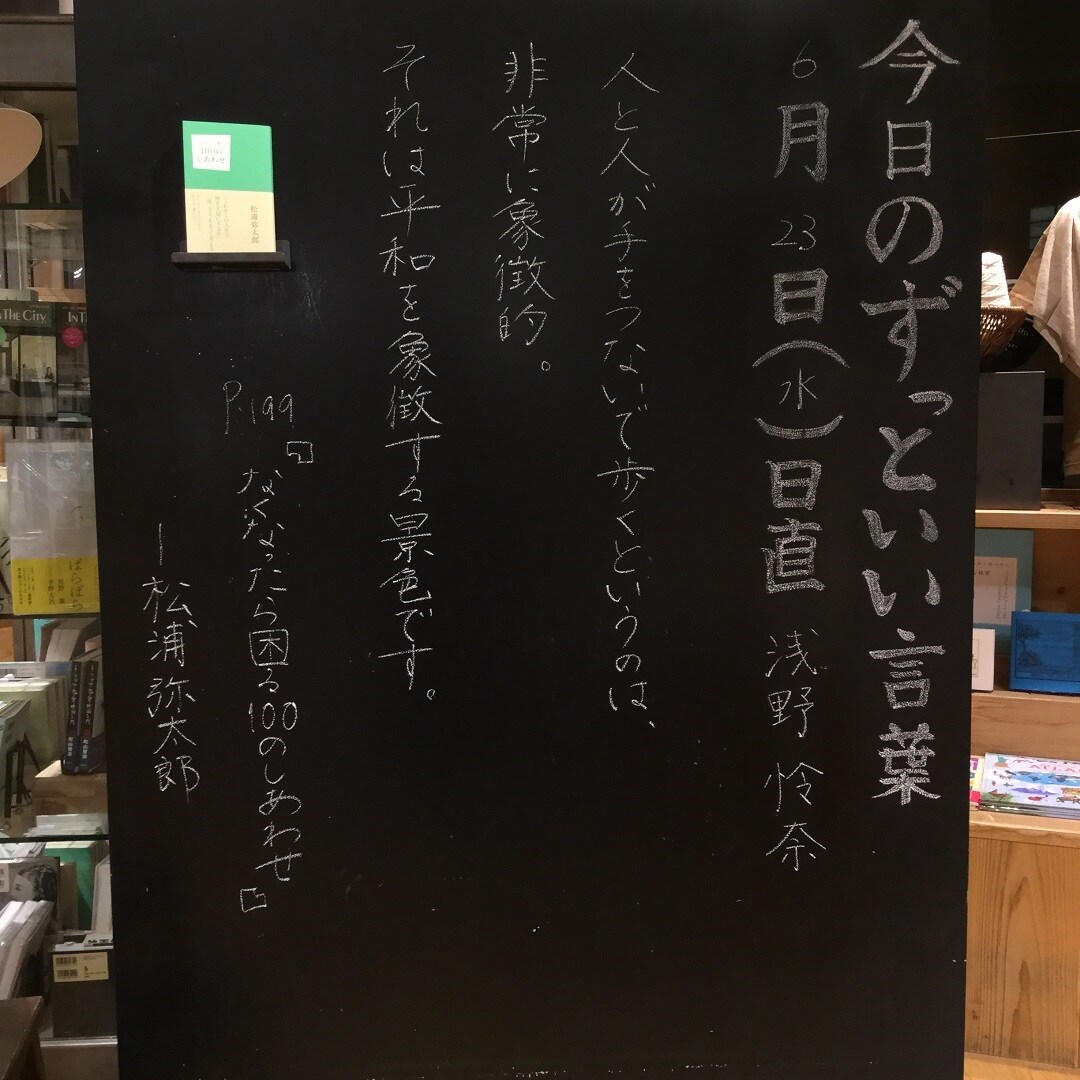 今日のずっといい言葉
6月23日(水)日直 浅野 怜奈
人と人が手をつないで歩くというのは、
非常に象徴的。
それは平和を象徴する景色です。
P.199
『なくなったら困る100のしあわせ』
―松浦弥太郎
100の
しあわせ
松浦弥太郎
THE CITY
ばらばら